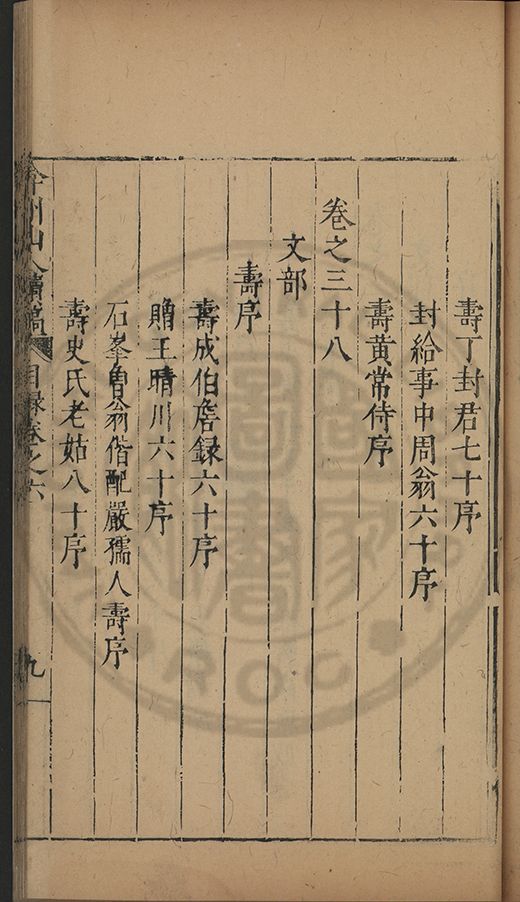 壽丁封君七十序
封給事中周翁六十序
壽黃常侍序
卷之三十八
文部
壽序
壽成伯詹錄六十序
贈王晴川六十序
石峯魯翁偕配嚴孺人壽序
壽史氏老姑八十序
弇州山人續稿 目錄卷之六 九